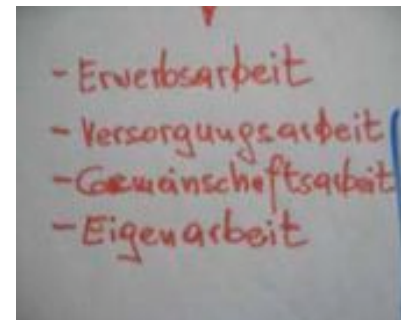 - Erwerbsarbeit
- Versorgungsarbeit
- Gemeinschaftsarbeit
- Eigenarbeit